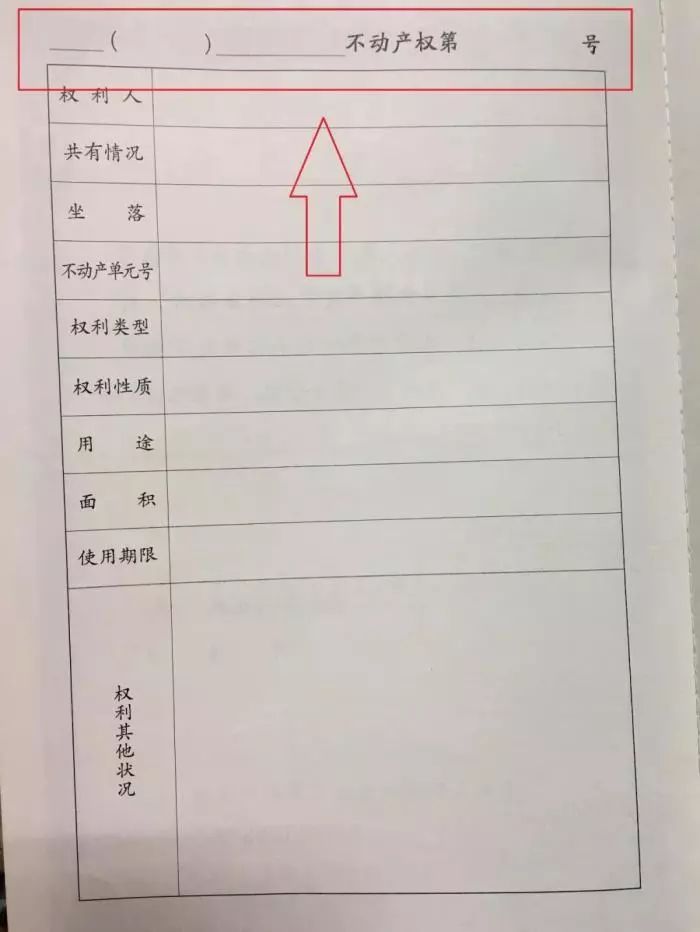 ____( )__________不动产权第 号
权利人
共有情况
坐 落
不动产单元号
权利类型
权利性质
用 途
面 积
使用期限
权利其他状况